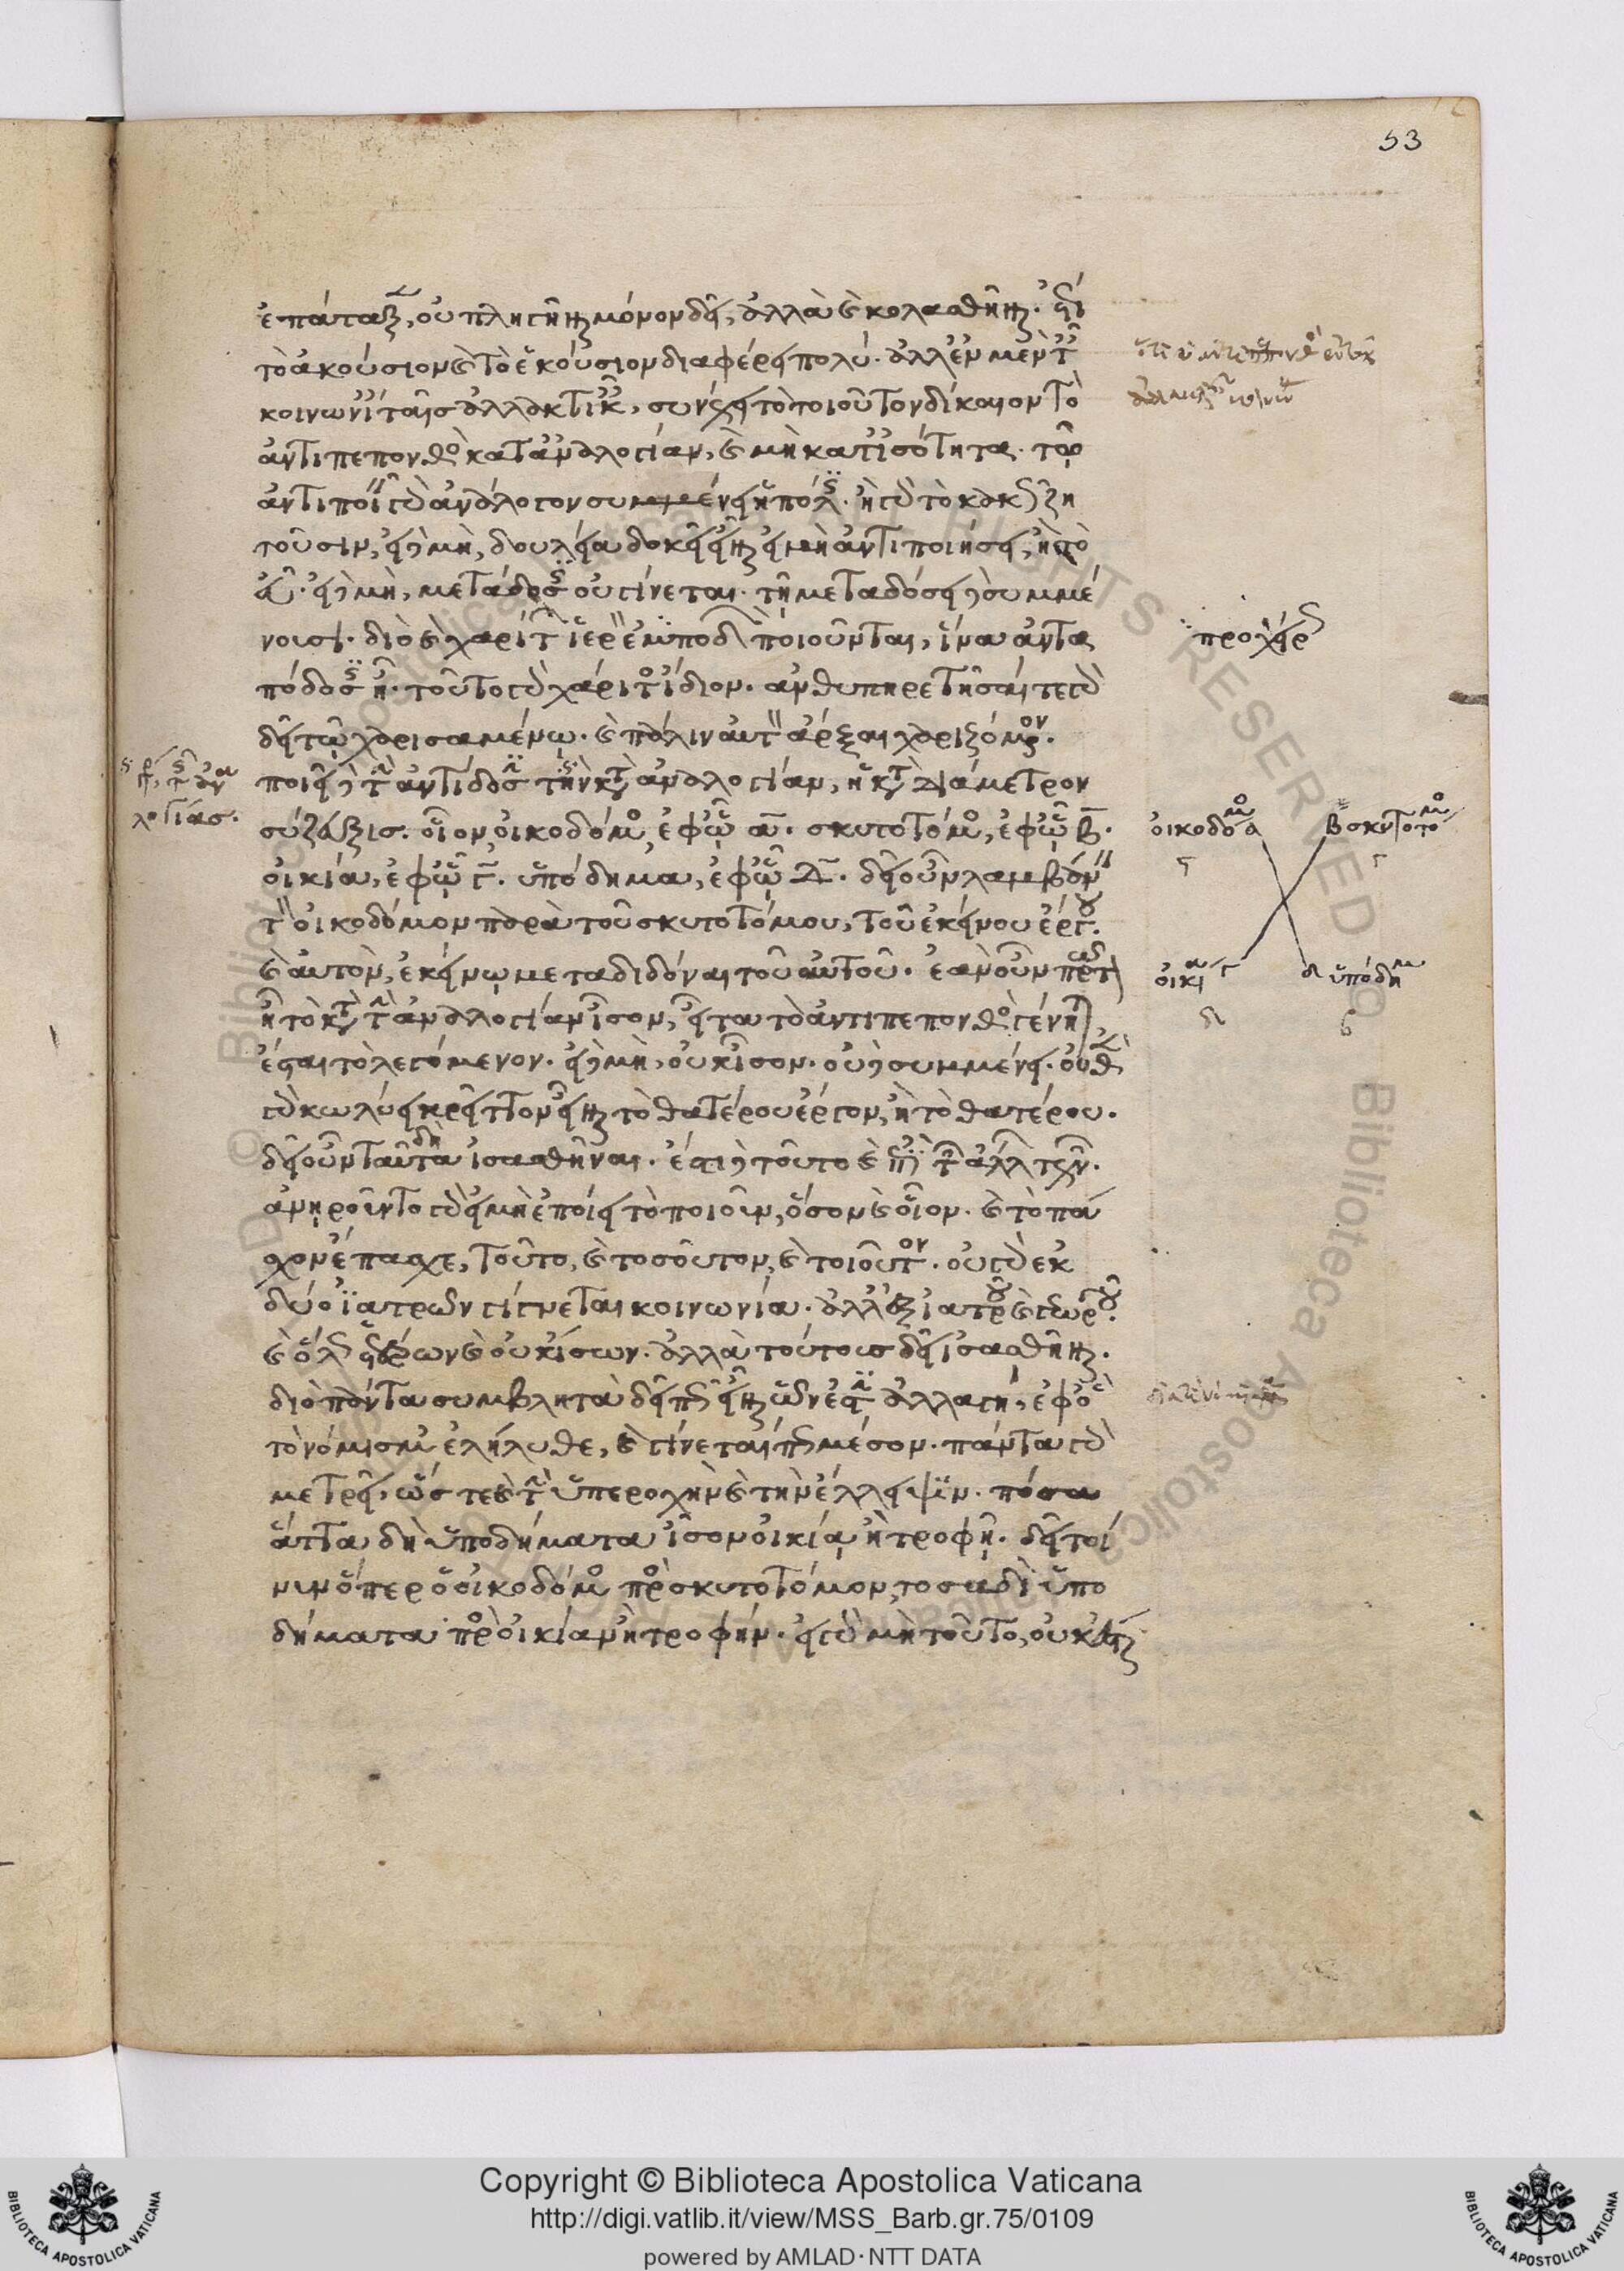 53
ἐπάταξεν, οὐ πληγῆναι μόνον δεῖ, ἀλλὰ καὶ κολασθῆναι. ἔτι
τὸ ἀκούσιον καὶ τὸ ἑκούσιον διαφέρει πολύ. ἀλλ' ἐν μὲν ταῖς
κοινωνίαις ταῖς ἀλλακτικαῖς, συνέχει τὸ τοιοῦτον δίκαιον τὸ
ἀντιπεπονθὸς κατ' ἀναλογίαν, καὶ μὴ κατ' ἰσότητα. τῷ
ἀντιποιεῖν γὰρ ἀνάλογον συμμένει ἡ πόλις. ἢ γὰρ τὸ κακῶς ζη
τοῦσιν, εἰ δὲ μὴ, δουλεία δοκεῖ εἶναι εἰ μὴ ἀντιποιήσει, ἢ τὸ
εὖ. εἰ δὲ μὴ, μετάδοσις οὐ γίνεται. τῇ μεταδόσει δὲ συμμέ
νουσι. διὸ καὶ χαρίτων ἱερὸν ἐμποδὼν ποιοῦνται, ἵνα ἀντα
πόδοσις ᾖ. τοῦτο γὰρ χάριτος ἴδιον. ἀνθυπηρετῆσαί τε γὰρ
δεῖ τῷ χαρισαμένῳ. καὶ πάλιν αὐτὸν ἄρξαι χαριζόμενον.
ποιεῖ δὲ τὴν ἀντίδοσιν τὴν κατὰ ἀναλογίαν, ἡ κατὰ διάμετρον
σύζευξις. οἷον, οἰκοδόμος, ἐφ' ᾧ α. σκυτοτόμος, ἐφ' ᾧ β.
οἰκία, ἐφ' ᾧ γ. ὑπόδημα, ἐφ' ᾧ δ. δεῖ οὖν λαμβάνειν
τὸν οἰκοδόμον παρὰ τοῦ σκυτοτόμου, τοῦ ἐκείνου ἔργου.
καὶ αὐτὸν, ἐκείνῳ μεταδιδόναι τοῦ αὑτοῦ. ἐὰν οὖν πρῶτον
ᾖ τὸ κατὰ τὴν ἀναλογίαν ἴσον, εἶτα τὸ ἀντιπεπονθὸς γένηται,
ἔσται τὸ λεγόμενον. εἰ δὲ μὴ, οὐκ ἴσον. οὐδὲ συμμένει. οὐθὲν
γὰρ κωλύει κρεῖττον εἶναι τὸ θατέρου ἔργον, ἢ τὸ θατέρου.
δεῖ οὖν ταῦτα δὴ ἰσασθῆναι. ἔστι δὲ τοῦτο καὶ ἐπὶ τῶν ἄλλων τεχνῶν.
ἀνῃροῦντο γὰρ εἰ μὴ ἐποίει τὸ ποιοῦν, ὅσον καὶ οἷον. καὶ τὸ πά
σχον ἔπασχε, τοῦτο, καὶ τοσοῦτον, καὶ τοιοῦτον. οὐ γὰρ ἐκ
δύο ἰατρῶν γίγνεται κοινωνία. ἀλλ' ἐξ ἰατροῦ καὶ γεωργοῦ.
καὶ ὅλως ἑτέρων καὶ οὐκ ἴσων. ἀλλὰ τούτους δεῖ ἰσασθῆναι.
διὸ πάντα συμβλητὰ δεῖ πως εἶναι ὧν ἐστὶν ἀλλαγή. ἐφ' ὃ
τὸ νόμισμα ἐλήλυθε, καὶ γίνεταί πως μέσον. πάντα γὰρ
μετρεῖ. ὥστε καὶ τὴν ὑπεροχὴν καὶ τὴν ἔλλειψιν. πόσα
ἄττα δὴ ὑποδήματα ἴσον οἰκίᾳ ἢ τροφῇ. δεῖ τοί
νυν ὅπερ ὁ οἰκοδόμος πρὸς σκυτοτόμον, τοσαδὶ ὑπο
δήματα πρὸς οἰκίαν ἢ τροφήν. εἰ γὰρ μὴ τοῦτο, οὐκ ἔσται
λογίας.
οἰκοδόμος α
β σκυτοτόμος
οἰκία γ
δ ὑπόδημα
Copyright © Biblioteca Apostolica Vaticana
http://digi.vatlib.it/view/MSS_Barb.gr.75/0109
powered by AMLAD·NTT DATA
BIBLIOTECA APOSTOLICA VATICANA
BIBLIOTECA APOSTOLICA VATICANA